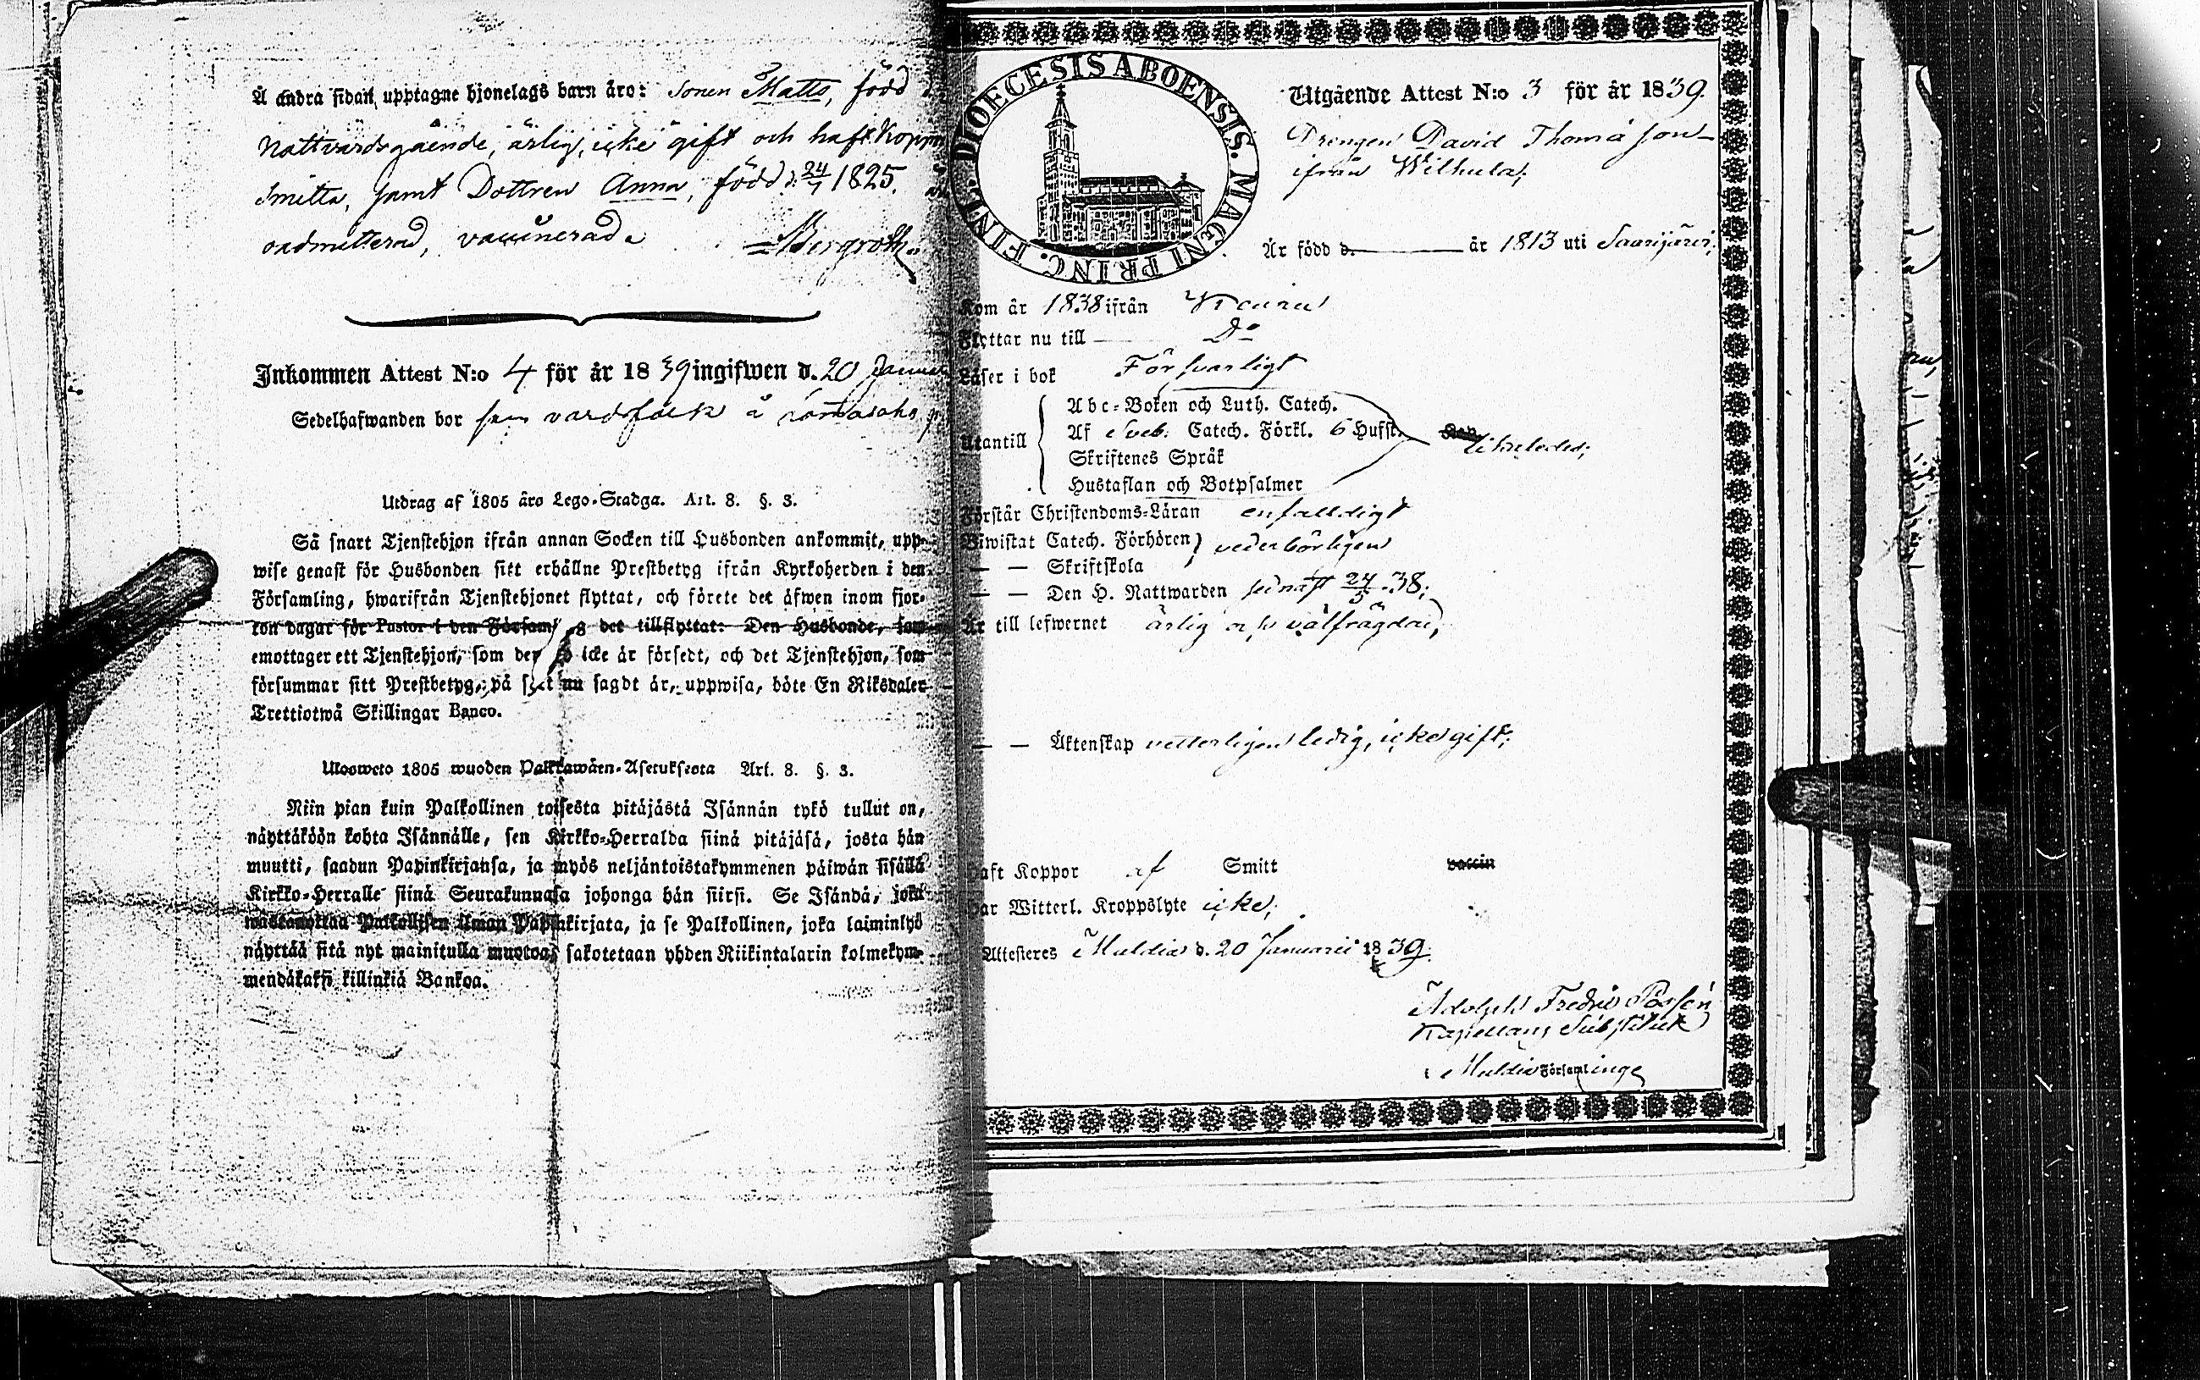 Å andra sidan upptagne hjonelags barn äro: Sonen Matts, född
Nattvardsgående, ärlig, icke gift och haft Koppor
Smitta, samt Dottren Anna, född d. 24/7 1825.
oadmitterad, vaccinerad.
Bergroth.
Inkommen Attest N:o 4 för år 1839 ingifwen d. 20 Januar
Sedelhafwanden bor som vardsfolk å
Utdrag af 1805 års Lego-Stadga. Art. 8. §. 3.
Så snart Tjenstehjon ifrån annan Socken till Husbonden ankommit, upp-
wise genast för Husbonden sitt erhållne Prestbetyg ifrån Kyrkoherden i den
Församling, hwarifrån Tjenstehjonet flyttat, och förete det äfwen inom fjor-
ton dagar för Pastor i den Församl g det tillflyttat: Den Husbonde, som
emottager ett Tjenstehjon, som der icke är försedt, och det Tjenstehjon, som
försummar sitt Prestbetyg, på sätt nu sagdt är, uppwisa, böte En Riksdaler
Trettiotwå Skillingar Banco.
Ulosweto 1805 wuoden Palkkawäen-Asetuksesta Art. 8. §. 3.
Niin pian kuin Palkollinen toisesta pitäjästä Isännän tykö tullut on,
näyttäköön kohta Isännälle, sen Kirkko-Herralda siinä pitäjäsä, josta hän
muutti, saadun Papinkirjansa, ja myös neljäntoistakymmenen päiwän sisällä
Kirkko-Herralle siinä Seurakunnasa johonga hän siirsi. Se Isändä, joka
wastanottaa Palkollisen ilman Papinkirjata, ja se Palkollinen, joka laiminlyö
näyttää sitä nyt mainitulla muotoa, sakotetaan yhden Riikintalarin kolmekym-
mendäkaksi killinkiä Bankoa.
DIOECESIS ABOENSIS. MAGNI PRINC. FINL.
Utgående Attest N:o 3 för år 1839.
Drengen David Thomasson
ifrån Wilhula,
Är född d. år 1813 uti Saarijärvi,
Kom år 1838 ifrån Keuru
Flyttar nu till D:o
Läser i bok Försvarligt
Utantill
Abc-Boken och Luth. Catech.
Af Sveb. Catech. Förkl. 6 Hufst.
Skriftenes Språk
Hustaflan och Botpsalmer
Förstår Christendoms-Läran enfalldigt
Biwistat Catech. Förhören vederbörligen
— — Skriftskola
— — Den H. Nattwarden senast 24/5 38;
Är till lefwernet ärlig och välfrägdad,
— — Äktenskap vetterligen ledig, icke gift;
Haft Koppor af Smitt vaccin
Har Witterl. Kroppslyte icke;
Attesteres Muldia d. 20 Januarii 1839.
Adolph Fredric
Kapellans Substitut
i Muldia Församlinge